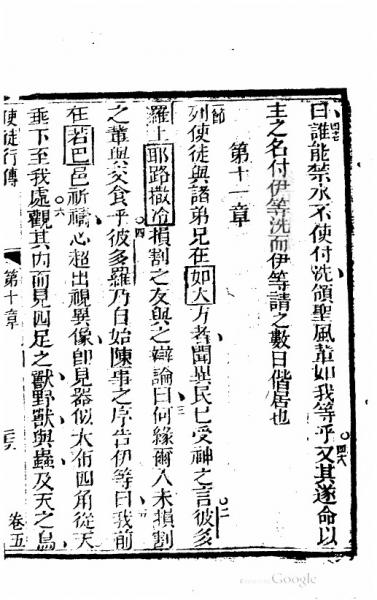 曰誰能禁水不使付洗領聖風輩如我等乎又其遂命以
主之名付伊等洗而伊等請之數日偕居也
第十一章
列使徒與諸弟兄在如大方者聞異民已受神之言彼多
羅上耶路撒冷損割之友與之辯論曰何緣爾入未損割
之輩與交食乎彼多羅乃自始陳事之序告伊等曰我前
在若巴邑祈禱心超出視異像即見器似大布四角從天
垂下至我處觀其內而見四足之獸野獸與蟲及天之鳥
使徒行傳
第十章
卷五
四七
四八
節
二
三
四
五
六
Google